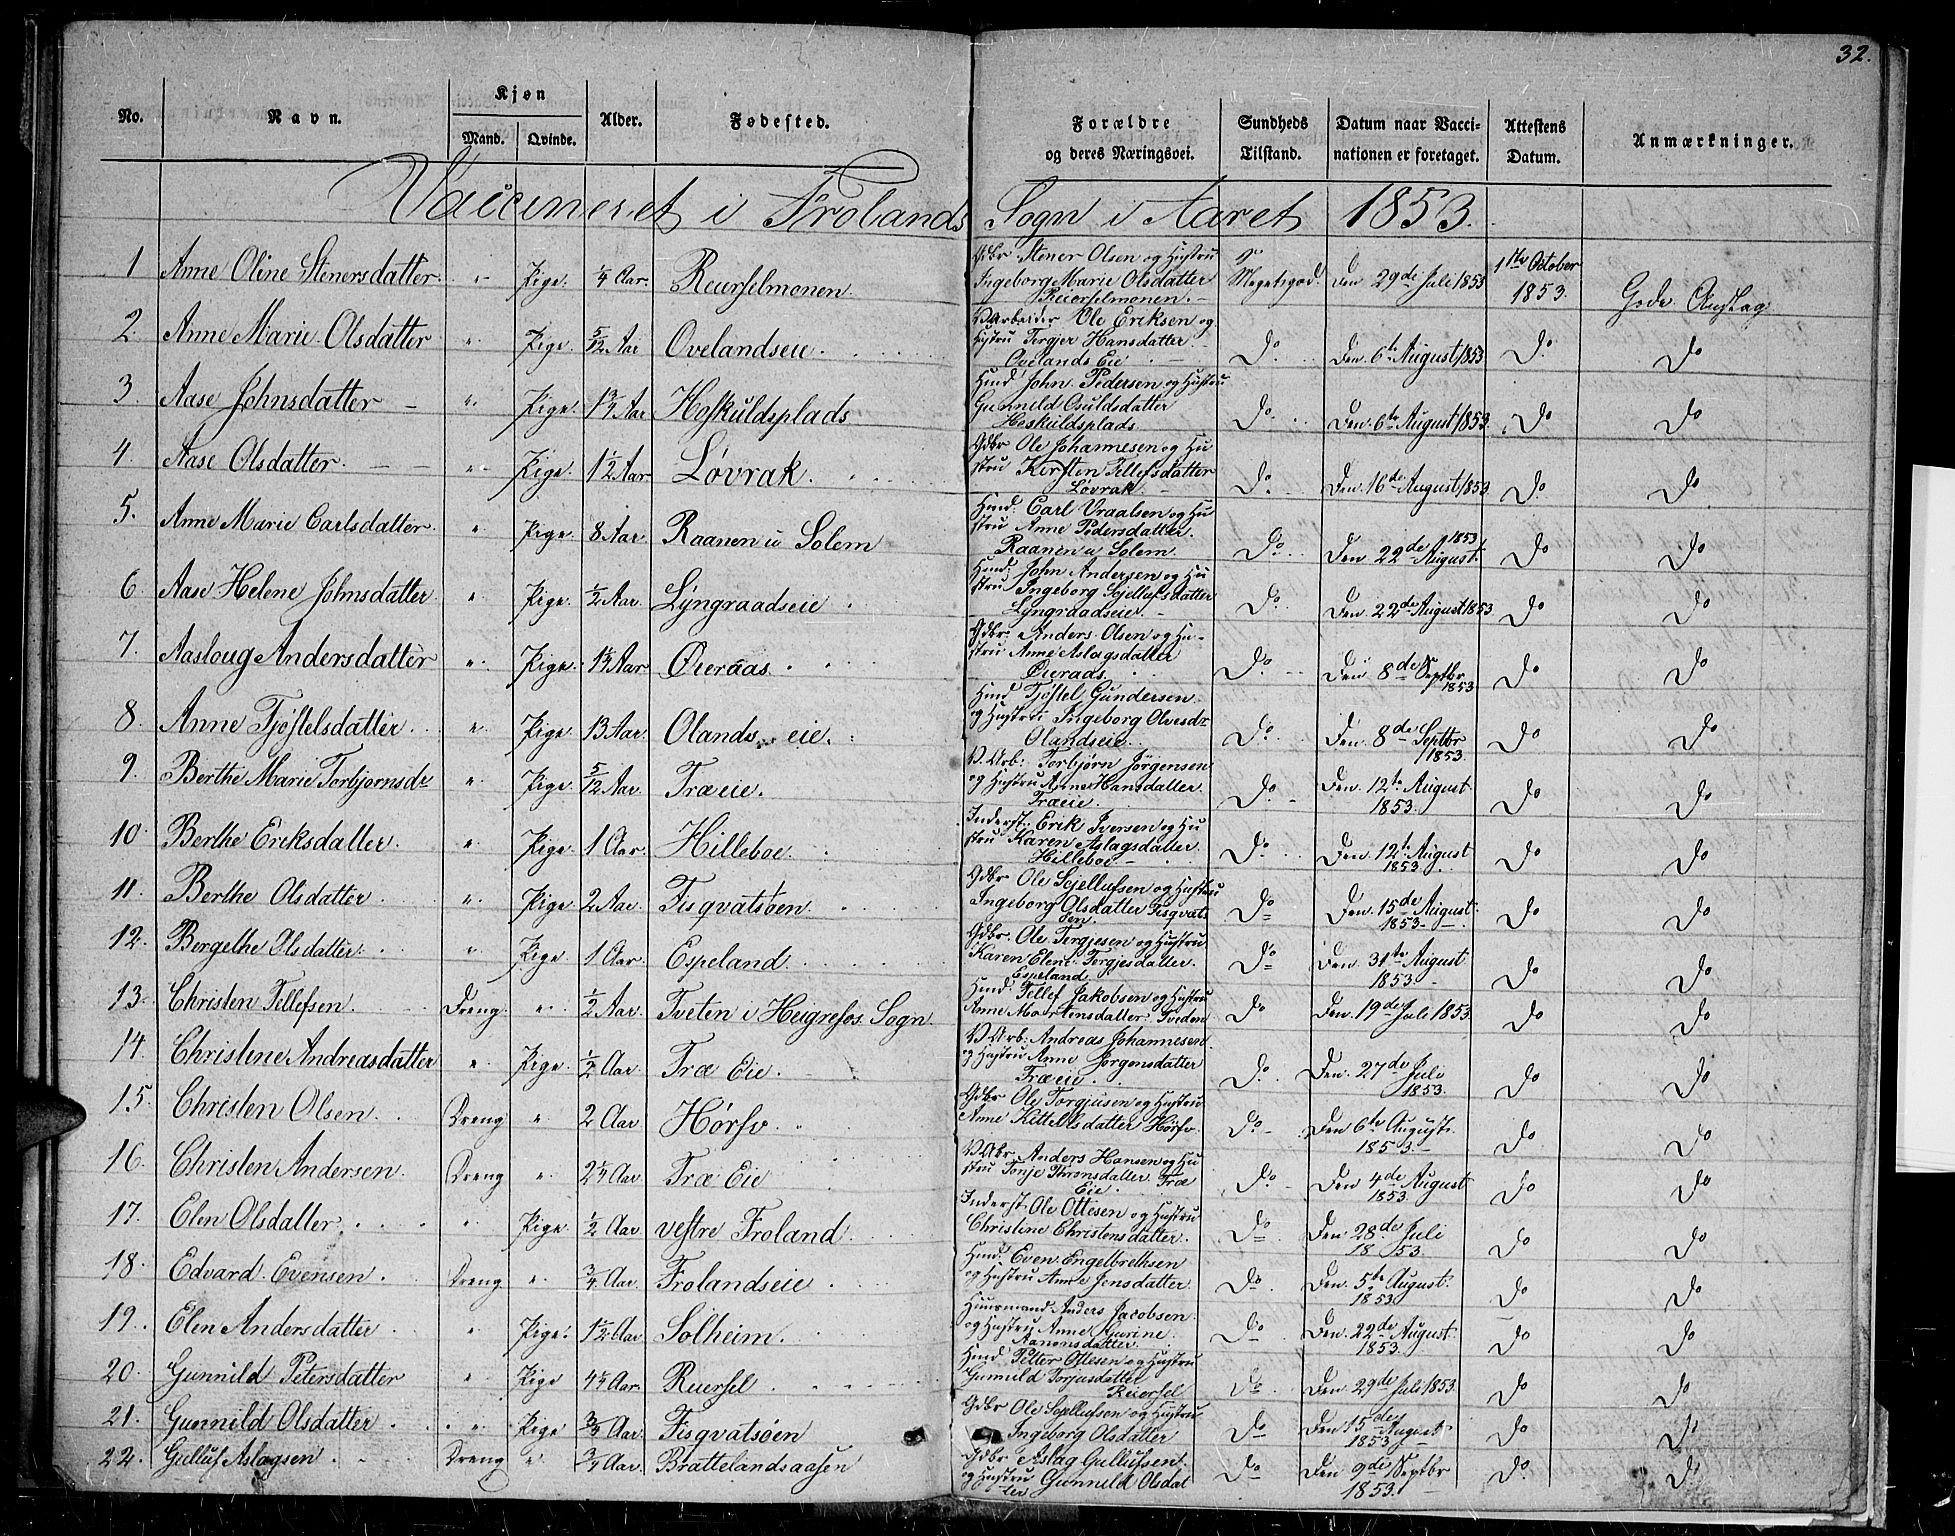 32.
No. Navn. Kjøn Mand. Qvinde. Alder. Fødested. Forældre og deres Næringsvei. Sundheds Tilstand. Datum naar Vaccinationen er foretaget. Attestens Datum. Anmærkninger.
Vaccineret i Frolands Sogn i Aaret 1853.
1 Anne Oline Stenersdatter. " Pige. 1/4 Aar. Reierselmonen. Gdbr Stener Olsen og Hustru Ingeborg Marie Olsdatter Reierselmonen. Meget god. Den 29de Juli 1853 1ste October 1853. Gode Anslag
2. Anne Marie Olsdatter " Pige. 5/12 Aar Ovelandseie. Arbeider Ole Eriksen og Hustru Tergjer Hansdatter Ovelands Eie Do. Den 6te August 1853 Do. Do
3 Aase Johnsdatter " Pige. 1 3/4 Aar Hoskuldsplads Hmd John Pedersen og Hustru Gunnild Osuldsdatter Heskuldsplads Do. Den 6te August 1853. Do Do
4. Aase Olsdatter. " Pige. 1 1/2 Aar Løvrak. Gdbr Ole Johannesen og Hustru Kirsten Tellefsdatter Løvrak. Do. Den 16de August 1853 Do Do
5. Anne Marie Carlsdatter. " Pige. 8 Aar Raanen u Solem Hmd. Carl Vraalsen og Hustru Anne Pedersdatter. Raanen u Solem. Do. Den 22de August 1853 Do Do
6 Aase Helene Johnsdatter " Pige. 1/2 Aar. Lyngraadseie Hmd: John Andersen og Hustru Ingeborg Gjellufsdatter Lyngraadseie. Do. Den 22de August 1853 Do Do
7. Aasloug Andersdatter " Pige. 1 1/2 Aar Øieraas. Gdbr. Anders Olsen og Hustru Anne Aslagsdatter Øierads. Do. Den 8de Septbr 1853 Do Do
8. Anne Tjøstelsdatter. " Pige. 13 Aar. Olands eie. Hmd Tjøstel Gundersen og Hustru Ingeborg Olvesdr Olandseie. Do. Den 8de Septbr 1853. Do Do
9. Berthe Marie Torbjornsdr " Pige. 5/12 Aar. Træeie. Arb: Torbjørn Jörgensen og Hustru Anne Hansdatter. Træeie. Do. Den. 12te August 1853. Do Do
10. Berthe Eriksdatter. " Pige. 1 Aar. Hilleboe. Inderst: Erik Iversen og Hustru Karen Aslagsdatter Hilleboe Do. Den. 12te August 1853. Do Do
11. Berthe Olsdatter " Pige 2 Aar. Fisqvatsøen Gdbr Ole Gjellufsen og Hustru Ingeborg Olsdatter Fisqvatsøen. Do Den. 15de August 1853. Do Do
12. Bergethe Olsdatter. " Pige 1 Aar. Espeland. Gdbr. Ole Tergjesen og Hustru Karen Elene Tergjesdatter. Espeland Do Den. 31te August 1853. Do Do
13. Christen Tellefsen. Dreng. " 1/2 Aar. Tveten i Heigrefos Sogn. Hmd. Tellef Jakobsen og Hustru Anne Mortensdatter Tveden Do Den. 19de Juli 1853. Do Do
14. Christene Andreasdatter " Pige. 1/2 Aar Træ Eie. Arb: Andreas Johannesen og Hustru Anne Jörgensdatter Træeie. Do. Den. 27de Juli 1853. Do Do
15. Christen Olsen. Dreng " 2 Aar Hørsv. Gdbr Ole Torgjusen og Hustru Anne Kittelsdatter Hørsv. Do. Den 6te August. 1853. Do Do
16. Christen Andersen. Dreng " 2 1/4 Aar Træ Eie Anders Hansen og Hustru Tonje Thronsdatter Træ Eie. Do. Den 4de August 1853. Do Do
17. Elen Olsdatter. " Pige 1/2 Aar vestre Froland. Inderst Ole Ottesen og Hustru Christine Christensdatter. Do Den. 28de Juli 1853. Do Do
18. Edvard Evensen. Dreng " 3/4 Aar. Frolandseie Hmd. Even Engelbrethsen og Hustru Anne Jensdatter Do Den. 5te August 1853 Do Do
19. Elen Andersdatter " Pige. 1 1/2 Aar Solheim. Huusmand Anders Jacobsen og Hustru Anne Do Den. 22de August 1853. Do Do
20. Gunnild Petersdatter " Pige 4 1/4 Aar. Reiersel. Hmd. Petter Ottesen og Hustru Gunnild Torjusdatter Reiersel Do Den 29de Juli 1853. Do Do
21. Gunnild Olsdatter. " Pige 3/4 Aar. Fisqvatsøen Gdbr Ole Gjellufsen og Hustru Ingeborg Olsdatter Do Den 15de August 1853 Do Do
22. Gulluf Aslagsen. Dreng " 3/4 Aar. Brattelandsaasen Gdbr Aslag Gullufsen og Hustru Gunnild Olsdatter Do Den 9de Septbr 1853. Do Do